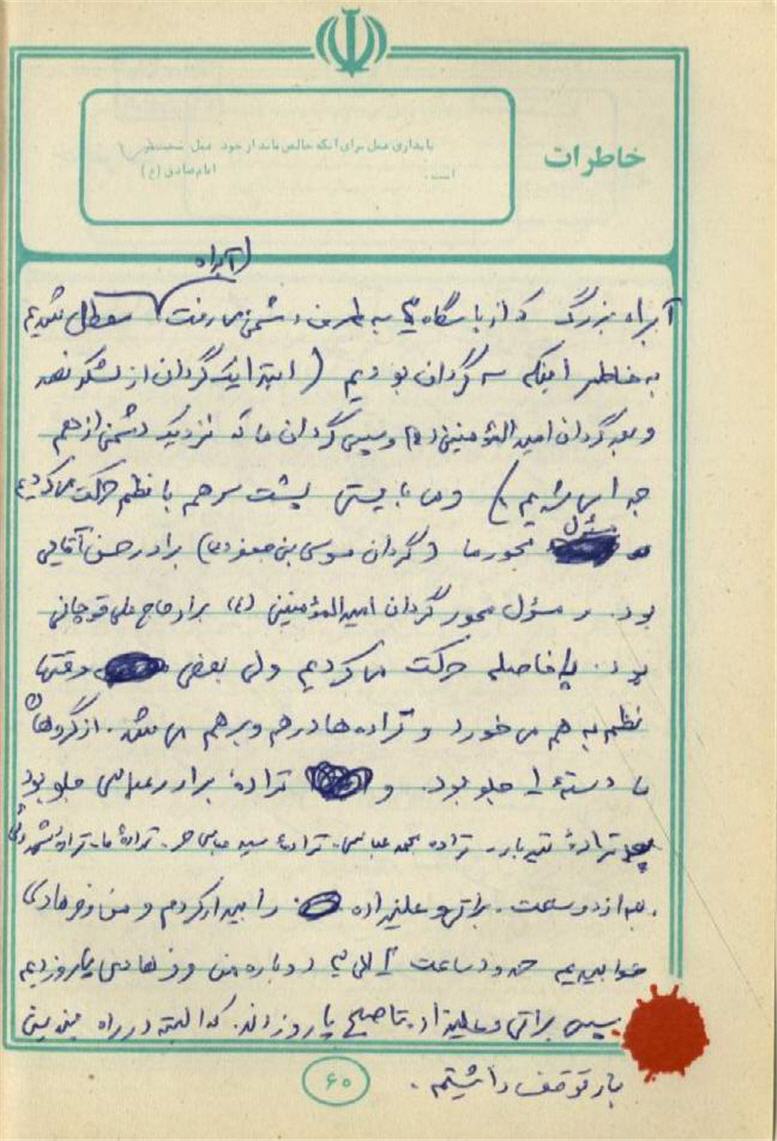 خاطرات
پایداری عمل برای آنکه خالص ماند از خود عمل سخت‌تر
است.
امام صادق (ع)
آبراه
آبراه بزرگ که از پاسگاه به طرف دشمن می رفت معطل شدیم
به خاطر اینکه سه گردان بودیم (ابتدا یک گردان از لشکر نصر
و بعد گردان امیرالمؤمنین (ع) و سپس گردان ما که نزدیک دشمن از هم
جدا می شدیم) و می بایستی پشت سر هم با نظم حرکت می کردیم
مسئول
محور ما (گردان موسی بن جعفر (ع)) برادر حسن آقایی
بود. و مسئول محور گردان امیرالمؤمنین (ع) برادر حاج علی قوچانی
بود. با فاصله حرکت می کردیم ولی بعضی وقتها
نظم به هم می خورد و تراده ها درهم و برهم می شد. از گروهان
ما دستهٔ ۱ جلو بود. و ترادهٔ برادر عباسی جلو بود
ترادهٔ تیربار. تراده محمد عباسی. ترادهٔ سید عباس. ترادهٔ ما.
بعد از دو ساعت. براتی و علیزاده را بیدار کردم و من و فرهادی
خوابیدیم حدود ساعت دوباره من و فرهادی پارو زدیم
سپس براتی و علیزاده تا صبح پارو زدند. که البته در راه چندین
بار توقف داشتیم.
۶۰